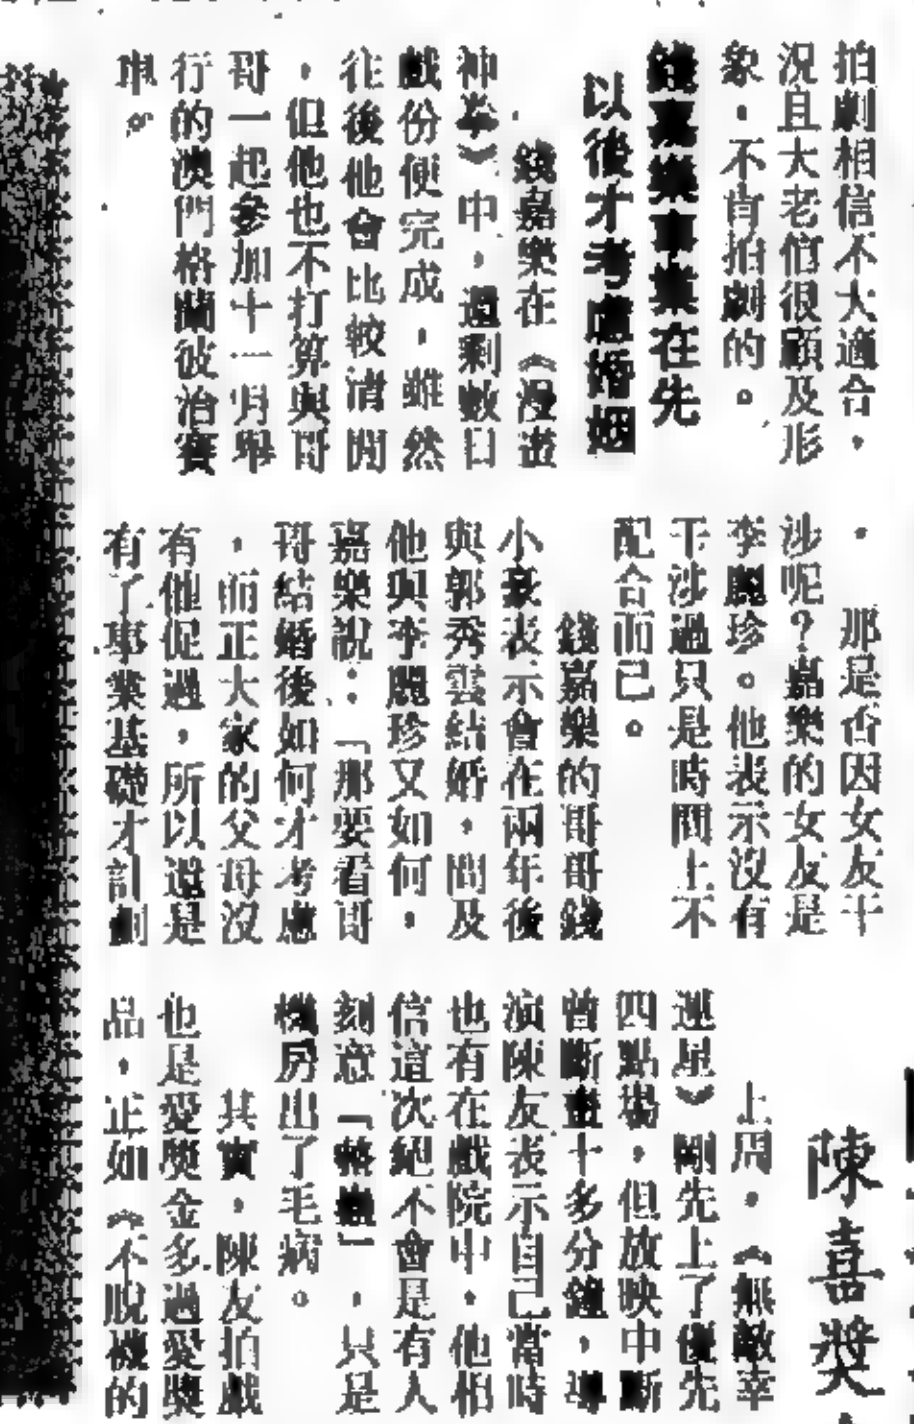 拍劇相信不大適合，
況且大老倌很顧及形
象，不肯拍劇的。
錢嘉樂事業在先
以後才考慮婚姻
錢嘉樂在《漫畫
神拳》中，還剩數日
戲份便完成，雖然
往後他會比較清閒
，但他也不打算與哥
哥一起參加十一月舉
行的澳門格蘭披治賽
車。
那是否因女友干
涉呢？嘉樂的女友是
李麗珍。他表示沒有
干涉過只是時間上不
配合而已。
錢嘉樂的哥哥錢
小豪表示會在兩年後
與郭秀雲結婚，問及
他與李麗珍又如何，
嘉樂說：「那要看哥
哥結婚後如何才考慮
，而正大家的父母沒
有催促過，所以還是
有了事業基礎才計劃
。
陳喜獎
上周，《無敵幸
運星》剛先上了優先
四點場，但放映中斷
曾斷畫十多分鐘，導
演陳友表示自己當時
也有在戲院中，他相
信這次絕不會是有人
刻意「整蠱」，只是
機房出了毛病。
其實，陳友拍戲
也是愛獎金多過愛獎
品，正如《不脫襪的